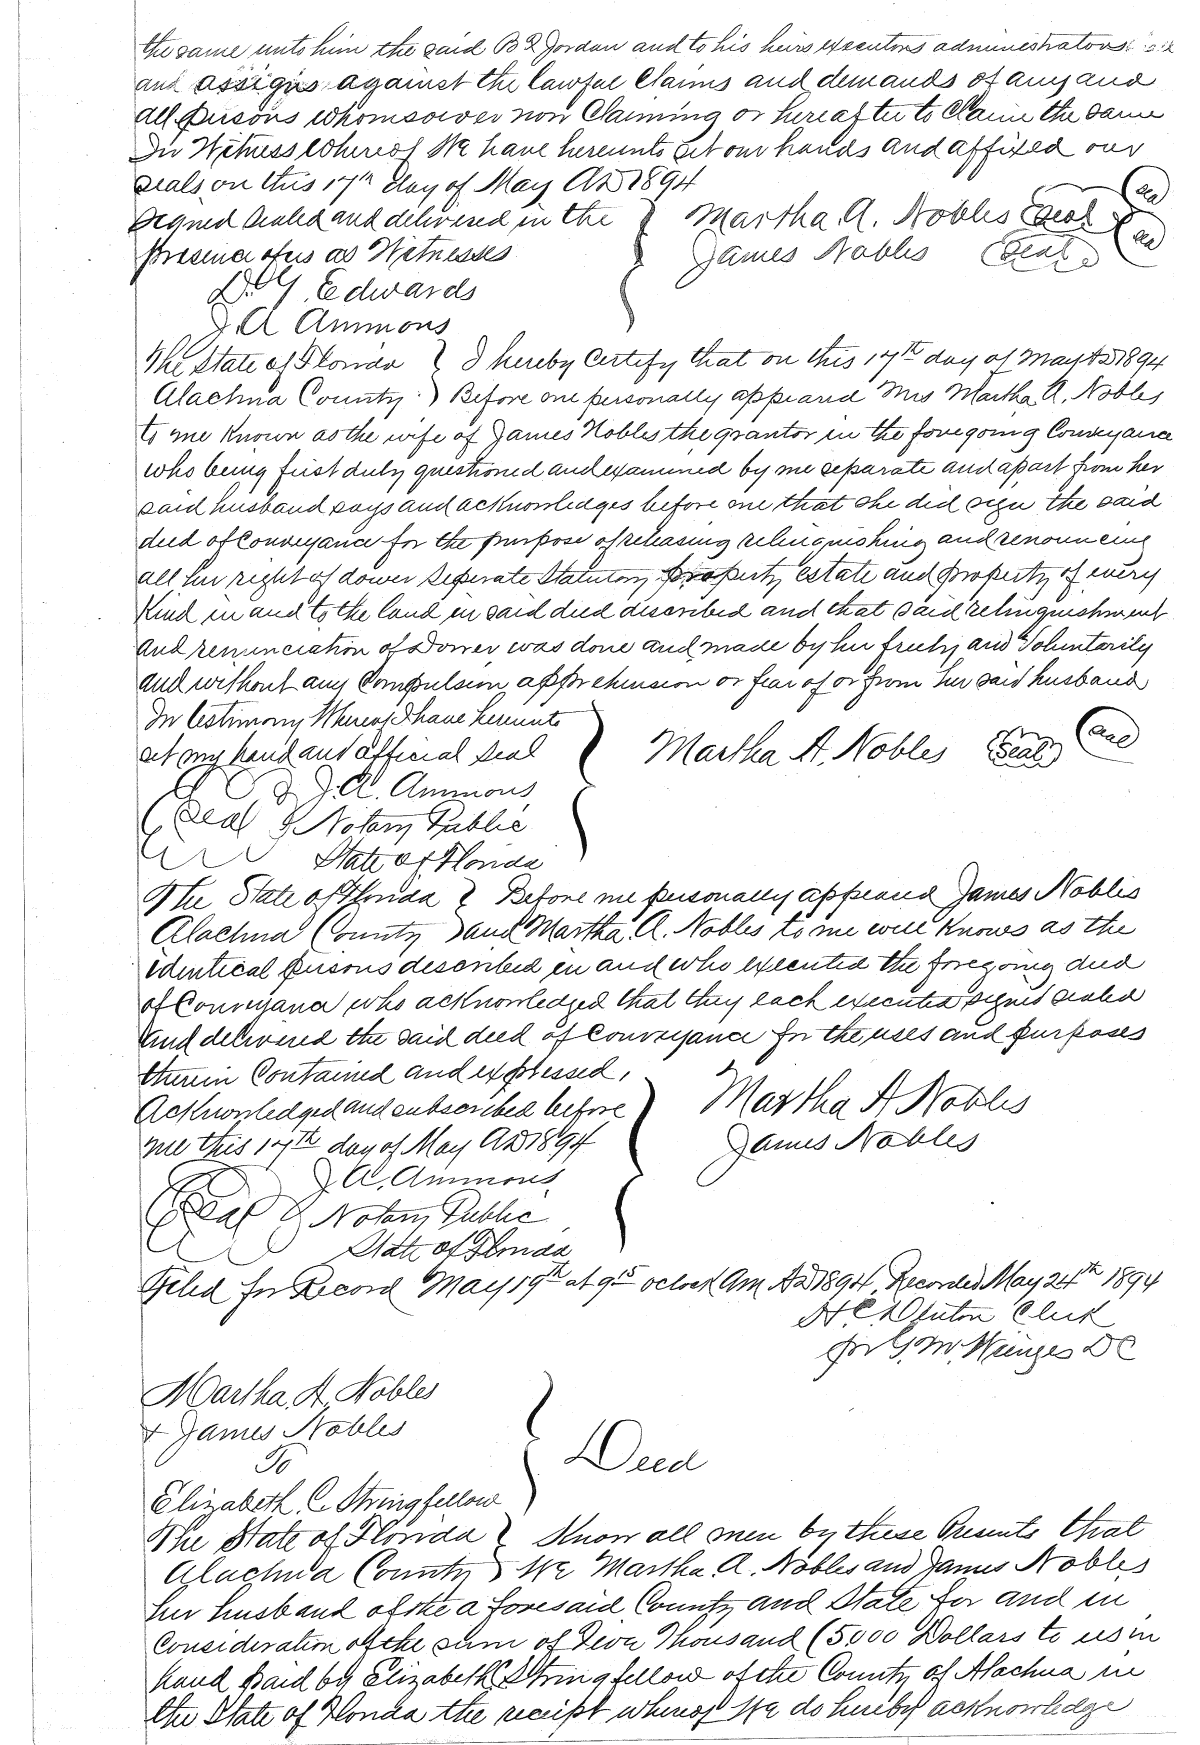 the same unto him the said B R Jordan and to his heirs executors administrators
and assigns against the lawful Claims and demands of any and
all persons whomsoever now Claiming or hereafter to Claim the same
In Witness Whereof We have hereunto set our hands and affixed our
seals on this 17th day of May AD 1894
Signed Sealed and delivered in the } Martha A. Nobles (Seal) (Seal)
presence of us as Witnesses } James Nobles (Seal) (Seal)
D. Y. Edwards
J. A Ammons
The State of Florida } I hereby Certify that on this 17th day of May AD 1894
Alachua County } Before me personally appeared Mrs Martha A. Nobles
to me Known as the wife of James Nobles the grantor in the foregoing Conveyance
who being first duly questioned and examined by me separate and apart from her
said husband says and acknowledges before me that she did sign the said
deed of Conveyance for the purpose of releasing relinquishing and renouncing
all her right of dower Seperate Statutory property estate and property of every
Kind in and to the land in said deed described and that said relinquishment
and renunciation of Dower was done and made by her freely and Voluntarily
and without any Compulsion apprehension or fear of or from her said husband
In testimony Whereof I have hereunto
set my hand and official Seal } Martha A. Nobles (Seal) (Seal)
J. A. Ammons
(Seal) Notary Public
State of Florida
The State of Florida } Before me personally appeared James Nobles
Alachua County } and Martha. A. Nobles to me well Knows as the
identical persons described in and who executed the foregoing deed
of Conveyance who acknowledged that they each executed signed sealed
and delivered the said deed of Conveyance for the uses and purposes
therein Contained and expressed,
Acknowledged and subscribed before } Martha A Nobles
me this 17th day of May AD 1894 } James Nobles
J A. Ammons
(Seal) Notary Public
State of Florida
Filed for Record May 19th at 9 15 oclock Am AD 1894, Recorded May 24th 1894
H. C. Denton Clerk
for G. M. DC
Martha. A. Nobles
+ James Nobles
To } Deed
Elizabeth. C. Stringfellow
The State of Florida } Know all men by these Presents that
Alachua County } We Martha. A. Nobles and James Nobles
her husband of the a foresaid County and State for and in
Consideration of the sum of Five Thousand (5,000 Dollars to us in
hand paid by Elizabeth C Stringfellow of the County of Alachua in
the State of Florida the receipt whereof We do hereby acknowledge